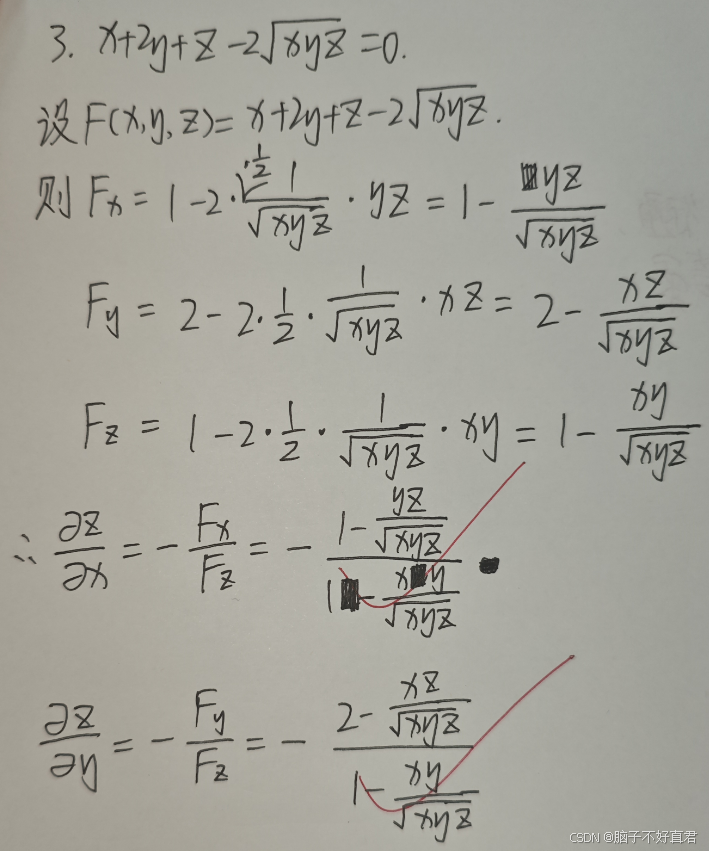 3. x+2y+z-2√(xyz)=0.
设F(x,y,z)=x+2y+z-2√(xyz).
则 Fx = 1-2·½·1/√(xyz)·yz = 1-yz/√(xyz)
Fy = 2-2·1/2·1/√(xyz)·xz = 2-xz/√(xyz)
Fz = 1-2·1/2·1/√(xyz)·xy = 1-xy/√(xyz)
∴ ∂z/∂x = -Fx/Fz = -(1-yz/√(xyz))/(1-xy/√(xyz))
∂z/∂y = -Fy/Fz = -(2-xz/√(xyz))/(1-xy/√(xyz))
CSDN @脑子不好直君